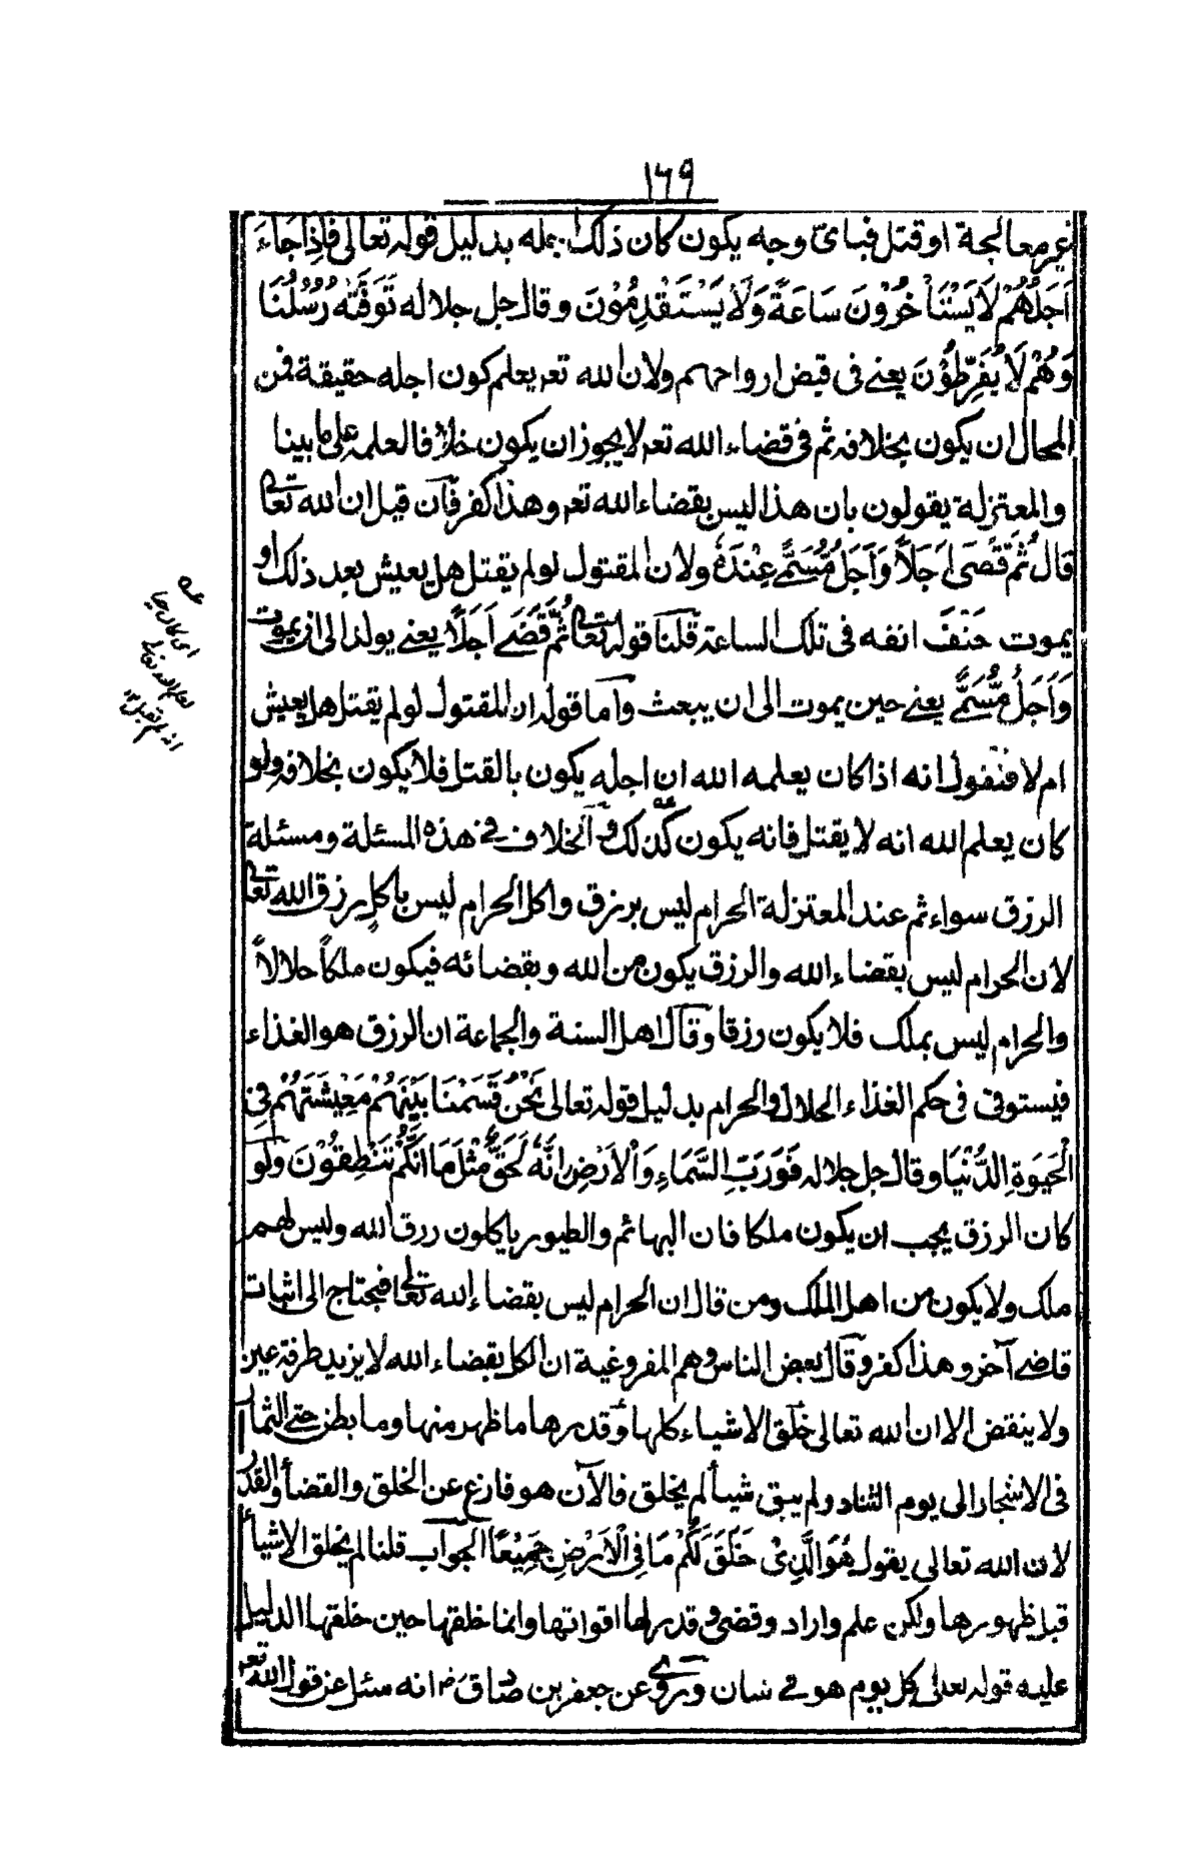 ١٦٩
غير معالجة او قتل فباى وجه يكون كان ذلك اجله بدليل قوله تعالى فَاِذَا جَاءَ
اَجَلُهُمْ لَا يَسْتَأْخِرُوْنَ سَاعَةً وَّلَا يَسْتَقْدِمُوْنَ وقال جل جلاله تَوَفَّتْهُ رُسُلُنَا
وَهُمْ لَا يُفَرِّطُوْنَ يعنے فى قبض ارواحهم ولان الله تعہ يعلم كون اجله حقيقة فمن
المحال ان يكون بخلافه ثم فى قضاء الله تعہ لا يجوز ان يكون خلافا لعلمه على ما بينا
والمعتزلة يقولون بان هذا ليس بقضاء الله تعہ وهذا كفر فان قيل ان الله تعالى
قال ثُمَّ قَضَى اَجَلًا وَاَجَلٌ مُّسَمًّى عِنْدَهٗ ولان المقتول لو لم يقتل هل يعيش بعد ذلك او
يموت حَتْفَ انفه فى تلك الساعة قلنا قوله تعالى ثُمَّ قَضٰے اَجَلًا يعنے يولد الى ان يموت
وَاَجَلٌ مُّسَمًّے يعنے حين يموت الى ان يبعث واما قوله ان المقتول لو لم يقتل هل يعيش
ام لا فنقول انه اذا كان يعلمه الله ان اجله يكون بالقتل فلا يكون بخلافه ولو
كان يعلم الله انه لا يقتل فانه يكون كذلك والخلاف فے هذه المسئلة ومسئلة
الرزق سواء ثم عند المعتزلة الحرام ليس برزق واكل الحرام ليس باكل رزق الله تعالى
لان الحرام ليس بقضاء الله والرزق يكون من الله وبقضائه فيكون ملكاً حلالاً
والحرام ليس بملك فلا يكون رزقا وقال اهل السنة والجماعة ان الرزق هو الغذاء
فيستوى فى حكم الغذاء الحلال والحرام بدليل قوله تعالى نَحْنُ قَسَمْنَا بَيْنَهُمْ مَعِيْشَتَهُمْ فِى
الْحَيٰوةِ الدُّنْيَا وقال جل جلاله فَوَرَبِّ السَّمَاءِ وَالْاَرْضِ اِنَّهٗ لَحَقٌّ مِّثْلَ مَا اَنَّكُمْ تَنْطِقُوْنَ ولو
كان الرزق يجب ان يكون ملكا فان البهائم والطيور ياكلون رزق الله وليس لهم
ملك ولا يكون من اهل الملك ومن قال ان الحرام ليس بقضاء الله تعالى فيحتاج الى اثبات
قاضے آخر وهذا كفر وقال بعض الناس وهم المفروغية ان الكل بقضاء الله لا يزيد طرفة عين
ولا ينقض الا ان الله تعالى خلق الاشياء كلها وقدرها ما ظهر منها وما بطن حتے الثمار
فى الاشجار الى يوم التناد ولم يبق شيأ لم يخلق فالآن هو فارغ عن الخلق والقضأ والقدر
لان الله تعالى يقول هُوَ الَّذِىْ خَلَقَ لَكُمْ مَا فِى الْاَرْضِ جَمِيْعًا الجواب قلنا لم يخلق الاشيأ
قبل ظهورها ولكن علم واراد وقضى وقدر لها اقواتها وانما خلقها حين خلقها الدليل
عليه قوله تعالى كل يوم هو فے شان وروى عن جعفر بن صادق رض انه سئل عن قول الله تعہ